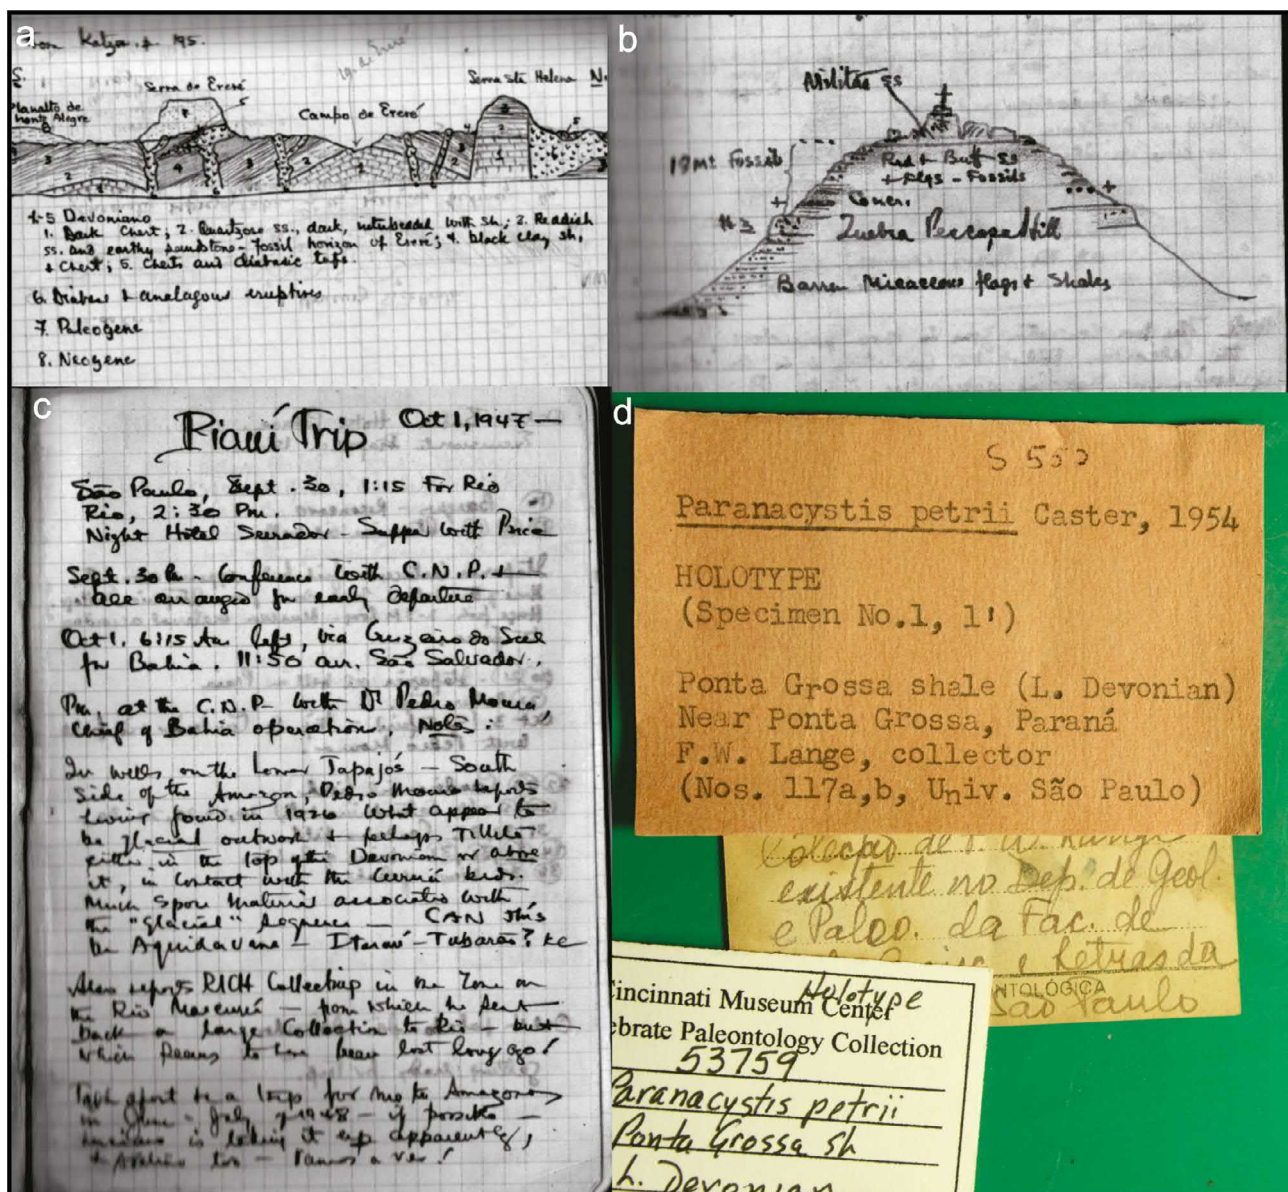 a
from Katzer, p. 195.
S.
Serra do Ereré
Serra Sta Helena N.
Planalto de
Monte Alegre
Campo de Ereré
1-5 Devoniano
1. Dark Chert; 2. Quartzose ss., dark, interbedded with sh.; 3. Reddish
ss. and earthy sandstone - Fossil horizon of Ereré; 4. black clay sh,
+ Chert; 5. Cherts and diabasic tufs.
6. Diabase + analagous eruptives
7. Paleogene
8. Neogene
b
ss
19 Mt Fossils
Red + Buff ss
+ Flgs - Fossils
Concr.
Hill
Barren Micaceous flags + Shales
c
Piauí Trip Oct 1, 1947 —
São Paulo, Sept. 30, 1:15 For Rio
Rio, 2:30 Pm.
Night Hotel Serrador - Supper with Price
Sept. 30 Pm - Conference with C.N.P. +
all arranged for early departure
Oct 1. 6:15 Am left, via Cruzeiro do Sul
for Bahia. 11:50 am. São Salvador.
Pm. at the C.N.P. with Dr Pedro Moura
Chief of Bahia operations, Notes:
In wells on the Lower Tapajós - South
side of the Amazon, Pedro Moura reports
having found in 1926 what appear to
be glacial outwash + perhaps Tillite
either in the top of the Devonian or above
it, in contact with the Curuá beds.
Much spore material associated with
the "Glacial" sequence — CAN this
be Aquidauana - Itararé - Tubarão? Kc
Also reports RICH Collecting in the Zone on
the Rio Maecurú - from which he sent
back a large Collection to Rio - but
which seems to have been lost long ago!
Talk about a trip for me to Amazonas
in June - July of 1948 - if possible -
is looking it up apparently,
too - Vamos a ver!
d
S 550
Paranacystis petrii Caster, 1954
HOLOTYPE
(Specimen No.1, 1')
Ponta Grossa shale (L. Devonian)
Near Ponta Grossa, Paraná
F.W. Lange, collector
(Nos. 117a,b, Univ. São Paulo)
Coleção de F. W. Lange
existente no Dep. de Geol.
e Paleo. da Fac. de
e Letras da
NTOLÓGICA
São Paulo
Holotype
Cincinnati Museum Center
ebrate Paleontology Collection
53759
Paranacystis petrii
Ponta Grossa sh
L. Devonian